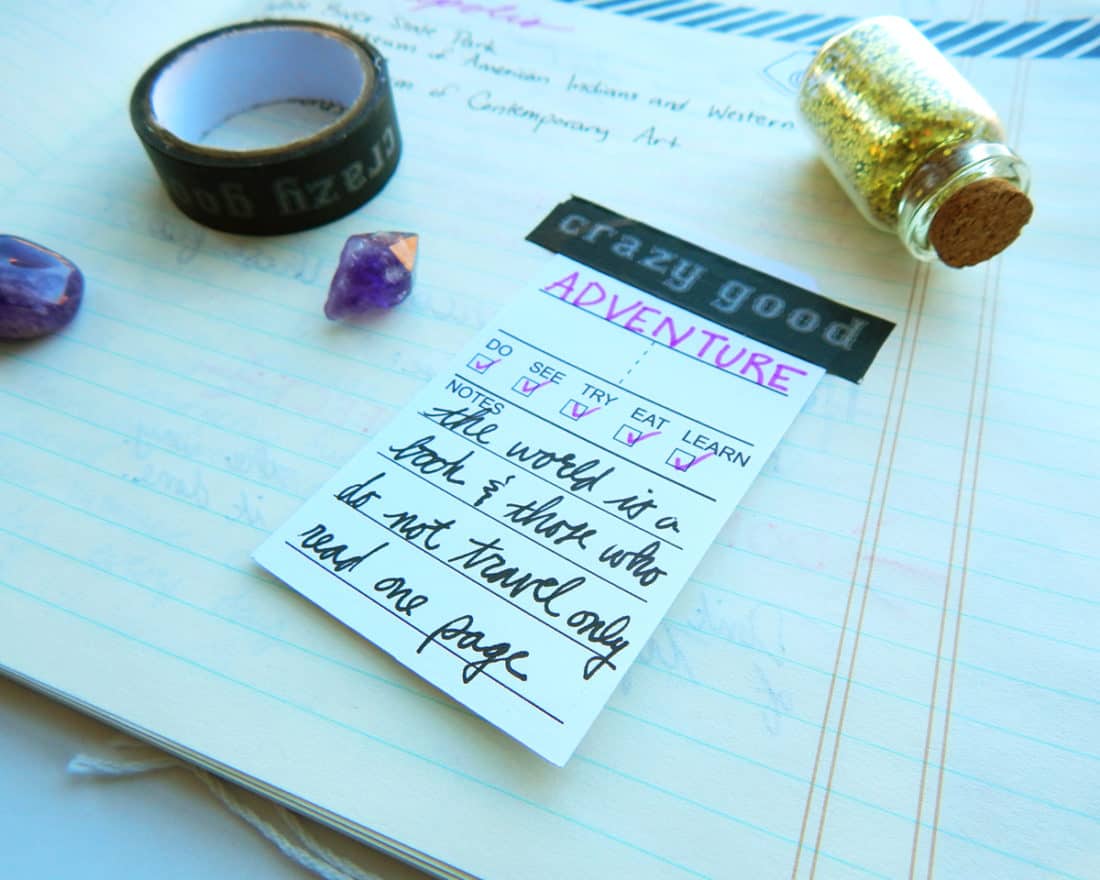 State Park
of American Indians and Western
of Contemporary Art
crazy goo
crazy good
ADVENTURE
DO SEE TRY EAT LEARN
NOTES
the world is a
book & those who
do not travel only
read one page